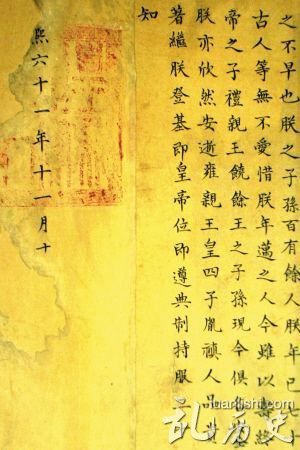 之不早也朕之子孫百有餘人朕年已七
古人等無不愛惜朕年邁之人今雖以壽終
帝之子禮親王饒餘王之子孫現今俱
朕亦欣然安逝雍親王皇四子胤禛人品貴
著繼朕登基即皇帝位即遵典制持服
知
熙六十一年十一月十
乱历史